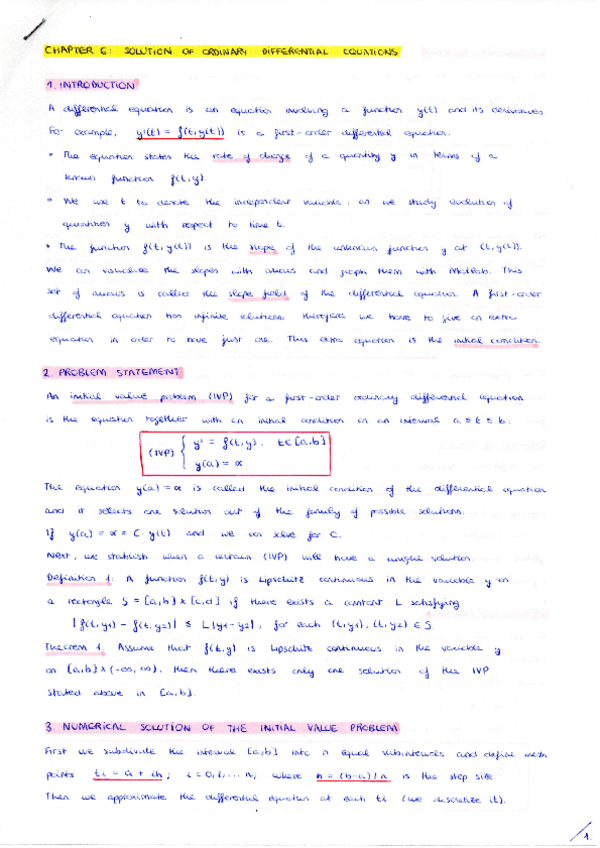 CHAPTER 6: SOLUTION OF ORDINARY DIFFERENTIAL EQUATIONS
1. INTRODUCTION
A differential equation is an equation involving a function y(t) and its derivatives
For example, y'(t) = f(t,y(t)) is a first-order differential equation.
• The equation states the rate of change of a quantity y in terms of a
known function f(t,y).
• We use t to denote the independent variable, as we study evolution of
quantities y with respect to time t.
• The function f(t,y(t)) is the slope of the unknown function y at (t,y(t)).
We can visualize the slopes with arrows and graph them with Matlab. This
set of arrows is called the slope field of the differential equation. A first-order
differential equation has infinite solutions therefore we have to give an extra
equation in order to have just one. This extra equation is the initial condition.
2. PROBLEM STATEMENT
An initial value problem (IVP) for a first-order ordinary differential equation
is the equation together with an initial condition on an interval a ≤ t ≤ b:
(IVP) { y' = f(t,y), t∈[a,b]
y(a) = α
The equation y(a) = α is called the initial condition of the differential equation
and it selects one solution out of the family of possible solutions.
If y(a) = α = C·y(t) and we can solve for C.
Next, we stablish when a certain (IVP) will have a unique solution.
Definition 1: A function f(t,y) is Lipschitz continuous in the variable y on
a rectangle S = [a,b] x [c,d] if there exists a constant L satisfying
|f(t,y1) - f(t,y2)| ≤ L|y1-y2|, for each (t,y1), (t,y2) ∈ S.
Theorem 1. Assume that f(t,y) is Lipschitz continuous in the variable y
on [a,b] x (-∞,∞). Then there exists only one solution of the IVP
stated above in [a,b].
3. NUMERICAL SOLUTION OF THE INITIAL VALUE PROBLEM
First we subdivide the interval [a,b] into n equal subintervals and define mesh
points ti = a + ih; i = 0,1,... n; where h = (b-a)/n is the step size.
Then we approximate the differential equation at each ti (we discretize it).
1.